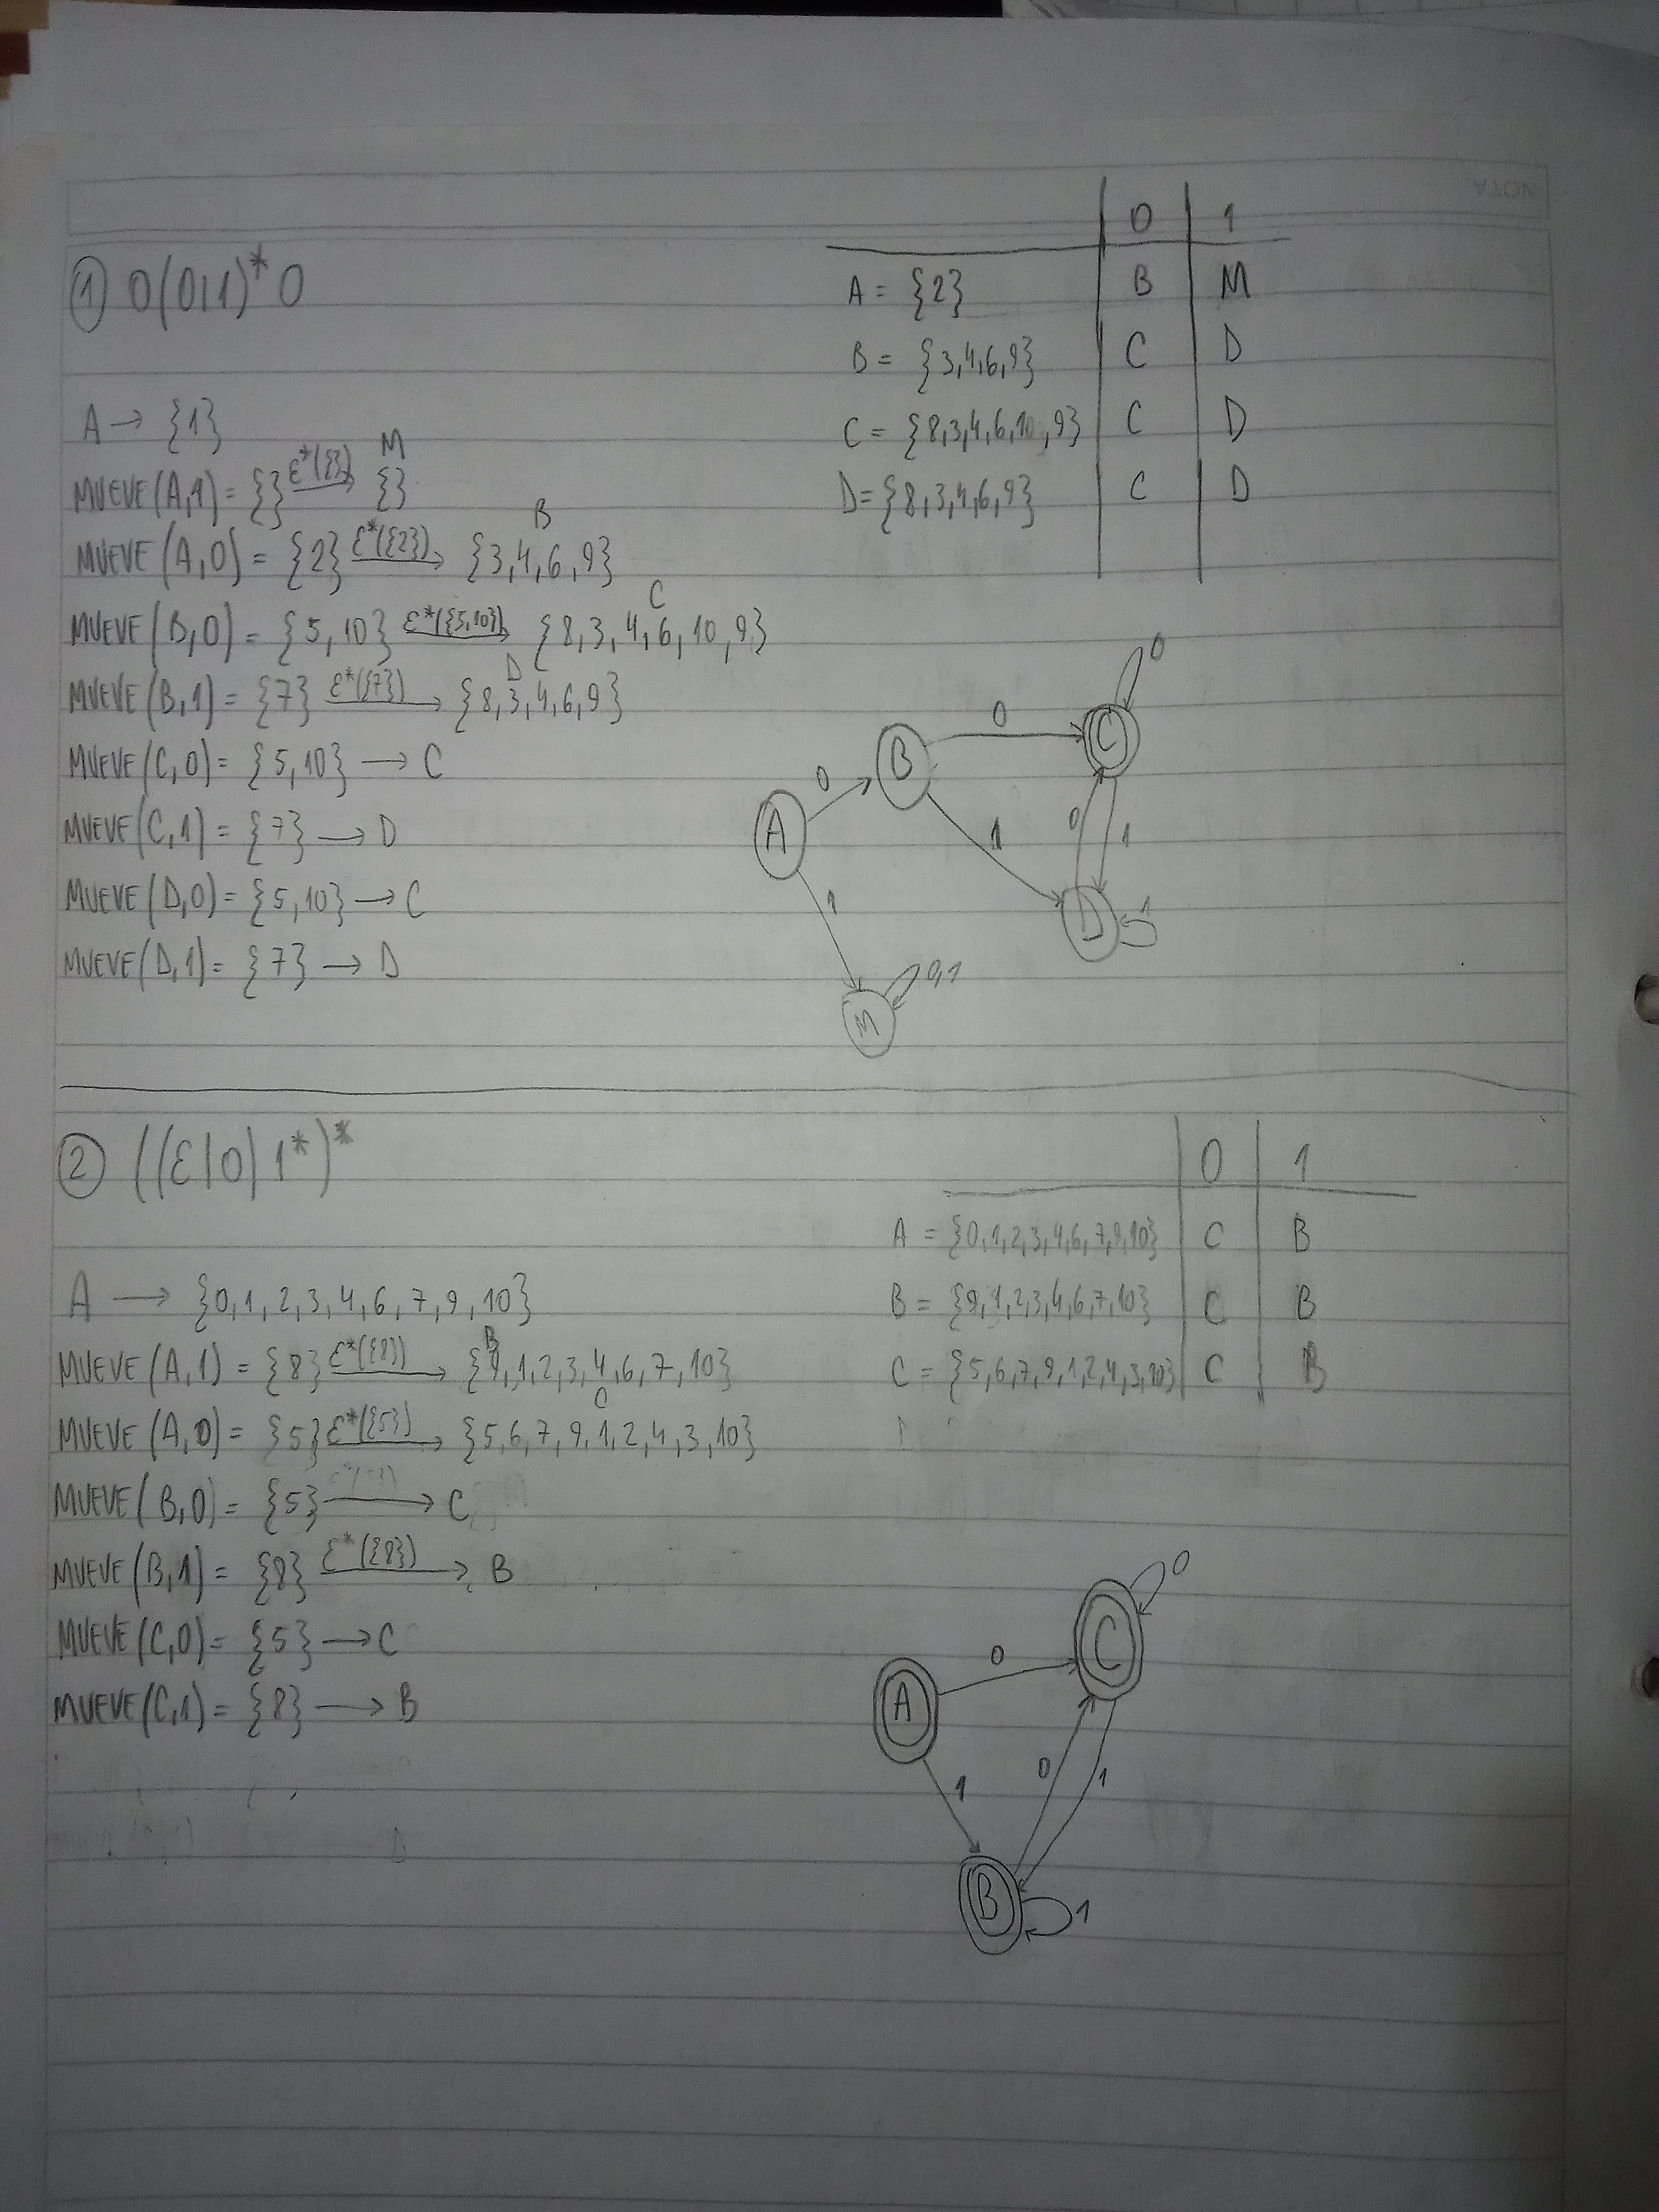 NOTA
① 0(0|1)*0
A → {1}
MUEVE(A,1) = {} ε*({}) → {} M
MUEVE(A,0) = {2} ε*({2}) → {3,4,6,9} B
MUEVE(B,0) = {5,10} ε*({5,10}) → {8,3,4,6,10,9} C
MUEVE(B,1) = {7} ε*({7}) → {8,3,4,6,9} D
MUEVE(C,0) = {5,10} → C
MUEVE(C,1) = {7} → D
MUEVE(D,0) = {5,10} → C
MUEVE(D,1) = {7} → D
0 1
A = {2} B M
B = {3,4,6,9} C D
C = {8,3,4,6,10,9} C D
D = {8,3,4,6,9} C D
0
0
C
B
0
A
1
0
1
1
D
1
0,1
M
② ((ε|0)1*)*
A → {0,1,2,3,4,6,7,9,10}
MUEVE(A,1) = {8} ε*({8}) → {9,1,2,3,4,6,7,10} B
MUEVE(A,0) = {5} ε*({5}) → {5,6,7,9,1,2,4,3,10} C
MUEVE(B,0) = {5} → C
MUEVE(B,1) = {8} ε*({8}) → B
MUEVE(C,0) = {5} → C
MUEVE(C,1) = {8} → B
0 1
A = {0,1,2,3,4,6,7,9,10} C B
B = {9,1,2,3,4,6,7,10} C B
C = {5,6,7,9,1,2,4,3,10} C B
0
C
0
A
1
0
1
B
1